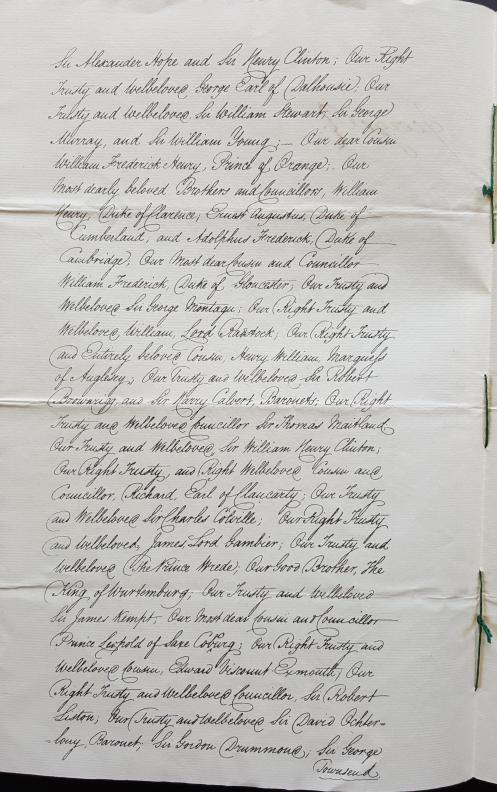 Sir Alexander Hope and Sir Henry Clinton; Our Right
Trusty and Welbeloved George Earl of Dalhousie; Our
Trusty and Welbeloved Sir William Stewart; Sir George
Murray, and Sir William Young; — Our dear Cousin
William Frederick Henry, Prince of Orange; Our
Most dearly beloved Brothers and Councillors, William
Henry, Duke of Clarence; Ernest Augustus, Duke of
Cumberland, and Adolphus Frederick, Duke of
Cambridge; Our Most dear Cousin and Councillor
William Frederick, Duke of Gloucester; Our Trusty and
Welbeloved Sir George Montagu; Our Right Trusty and
Welbeloved, William, Lord Radstock; Our Right Trusty
and Entirely beloved Cousin, Henry William, Marquess
of Anglesey; Our Trusty and Welbeloved Sir Robert
Brownrigg, and Sir Harry Calvert, Baronets, Our Right
Trusty and Welbeloved Councillor Sir Thomas Maitland
Our Trusty and Welbeloved Sir William Henry Clinton;
Our Right Trusty, and Right Welbeloved Cousin and
Councillor, Richard, Earl of Clancarty; Our Trusty
and Welbeloved Sir Charles Colville; Our Right Trusty
and Welbeloved, James Lord Gambier; Our Trusty and
Welbeloved The Prince Wrede; Our Good Brother, The
King of Wurtemburg; Our Trusty and Welbeloved
Sir James Kempt, Our Most dear Cousin and Councillor
Prince Leopold of Saxe Coburg; Our Right Trusty and
Welbeloved Cousin, Edward Viscount Exmouth; Our
Right Trusty and Welbeloved Councillor, Sir Robert
Liston; Our Trusty and Welbeloved Sir David Ochter-
-lony, Baronet; Sir Gordon Drummond; Sir George
Townsend